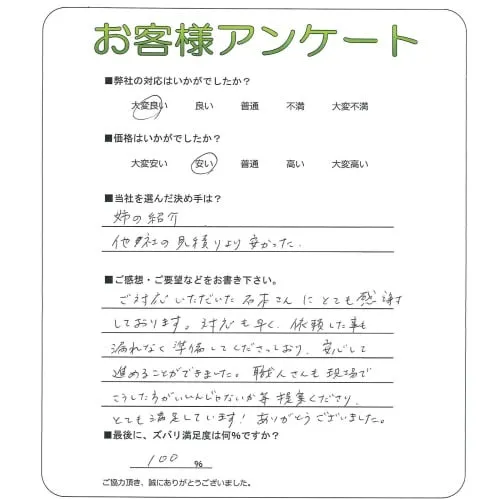 お客様アンケート
■弊社の対応はいかがでしたか?
大変良い 良い 普通 不満 大変不満
■価格はいかがでしたか?
大変安い 安い 普通 高い 大変高い
■当社を選んだ決め手は?
姉の紹介
他社の見積りより安かった.
■ご感想・ご要望などをお書き下さい。
ご対応いただいた石本さんにとても感謝
しております。対応も早く、依頼した事も
漏れなく準備してくださっしおり、安心して
進めることができました。職人さんも現場で
こうした方がいいんじゃないか等提案くださり、
とても満足しています! ありがとうございました。
■最後に、ズバリ満足度は何%ですか?
100 %
ご協力頂き、誠にありがとうございました。